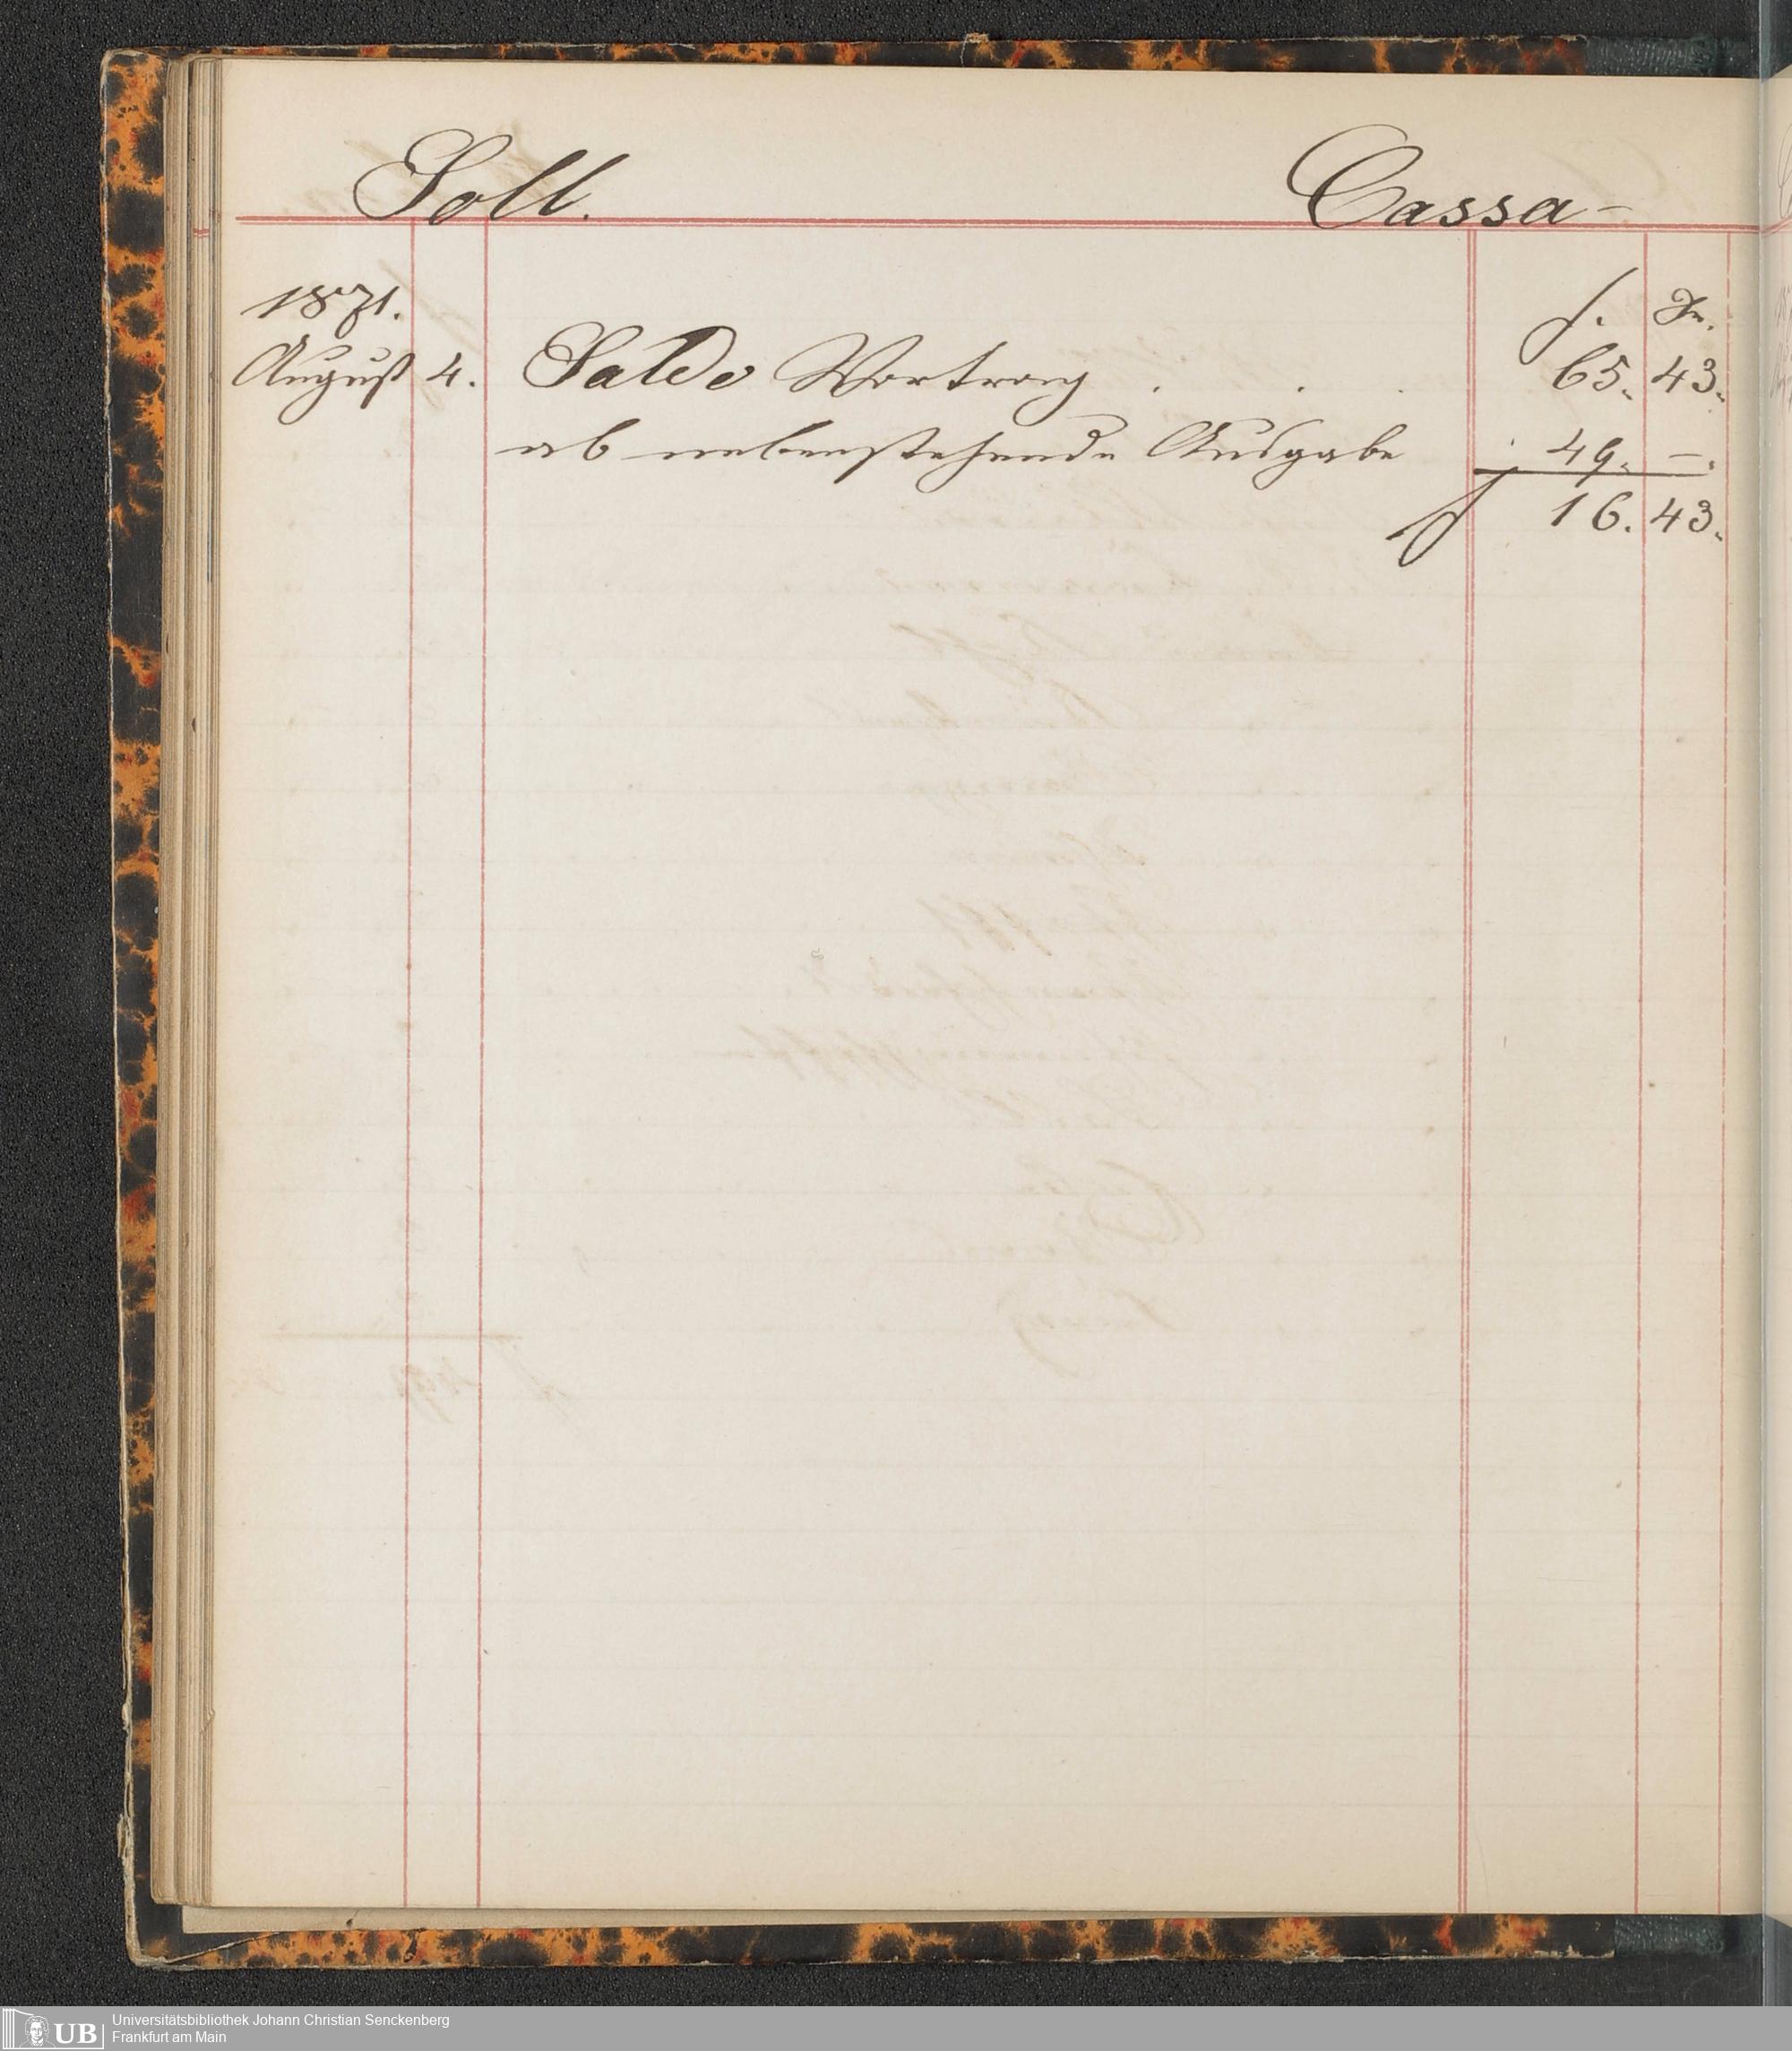 Soll. Cassa-
1871. f. Xr.
August 4. Saldo Vortrag . . . 65. 43.
ab nebenstehende Ausgabe . 49. –.
f 16. 43.
UB
Universitätsbibliothek Johann Christian Senckenberg
Frankfurt am Main